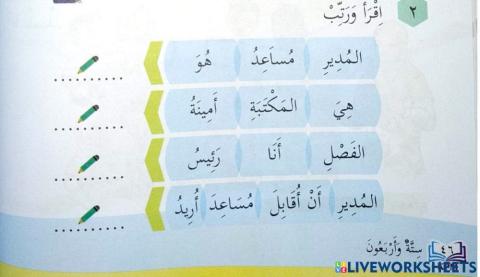 ٢ اِقْرَأْ وَرَتِّبْ
المُدِيرِ مُسَاعِدُ هُوَ
هِيَ المَكْتَبَةِ أَمِينَةُ
الفَصْلِ أَنَا رَئِيسُ
المُدِيرِ أَنْ أُقَابِلَ مُسَاعِدَ أُرِيدُ
٤٦ سِتَّةٌ وَأَرْبَعُونَ
LIVEWORKSHEETS